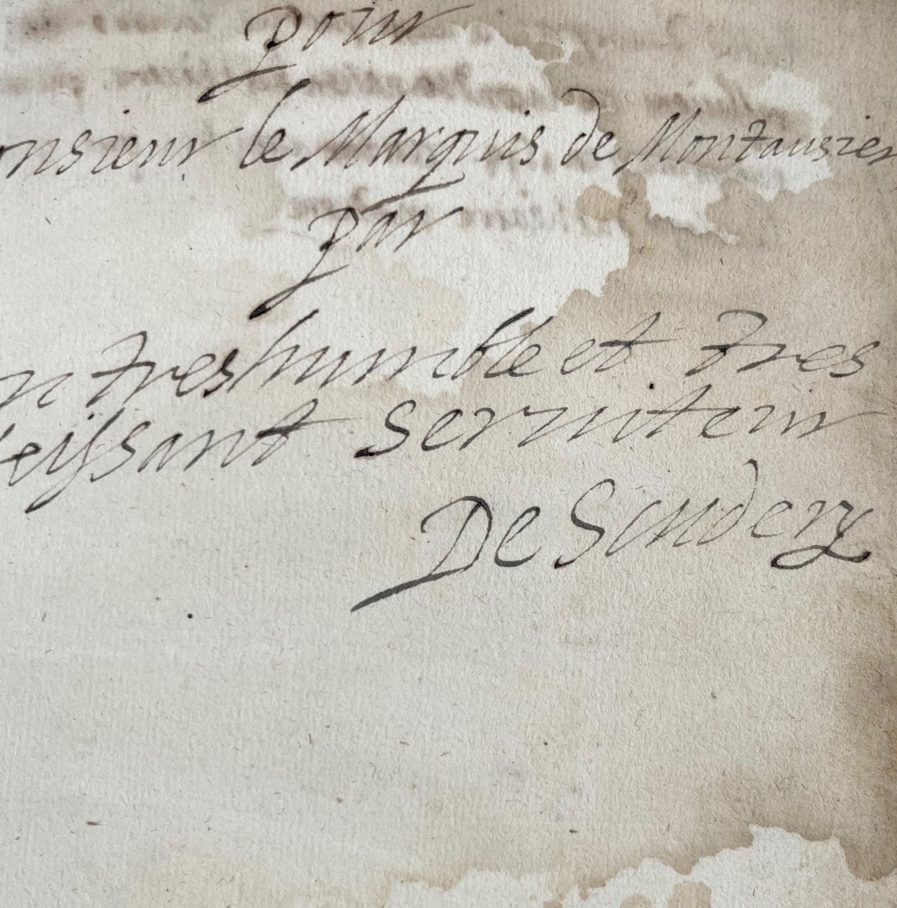 pour
onsieur le Marquis de Montausier
par
n treshumble et tres
eissant seruiteur
De Scudery